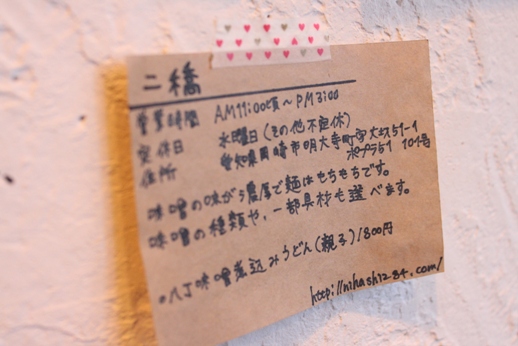 二橋
営業時間 AM11:00頃〜PM3:00
定休日 水曜日(その他不定休)
住所 愛知県岡崎市明大寺町字大圦51-1
ポプラ51 101号
味噌の味がう濃厚で麺はもちもちです。
味噌の種類や、一部具材も選べます。
八丁味噌煮込みうどん(親子)1800円
http://nihashi1234.com/